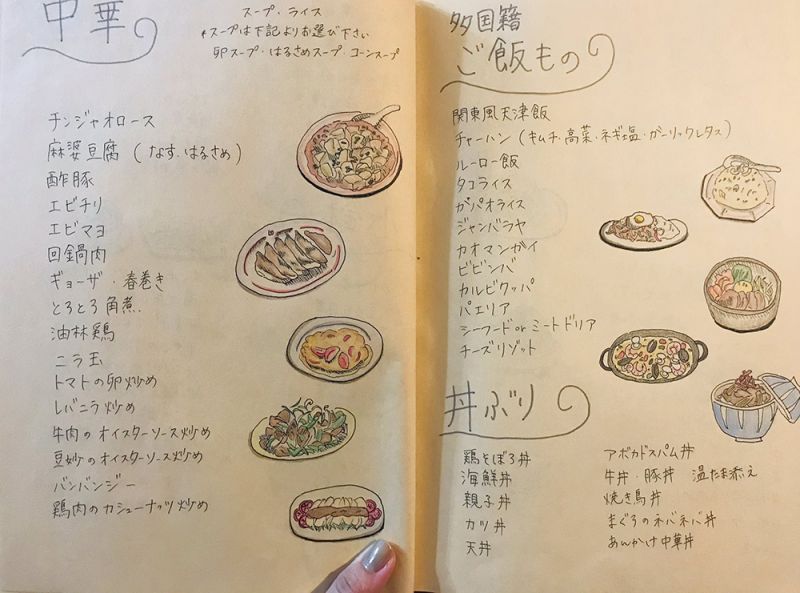 中華
スープ・ライス
*スープは下記よりお選び下さい
卵スープ・はるさめスープ・コーンスープ
チンジャオロース
麻婆豆腐(なす・はるさめ)
酢豚
エビチリ
エビマヨ
回鍋肉
ギョーザ・春巻き
とろとろ角煮
油林鶏
ニラ玉
トマトの卵炒め
レバニラ炒め
牛肉のオイスターソース炒め
豆妙のオイスターソース炒め
バンバンジー
鶏肉のカシューナッツ炒め
多国籍
ご飯もの
関東風天津飯
チャーハン(キムチ・高菜・ネギ塩・ガーリックレタス)
ルーロー飯
タコライス
ガパオライス
ジャンバラヤ
カオマンガイ
ビビンバ
カルビクッパ
パエリア
シーフード or ミートドリア
チーズリゾット
丼ぶり
鶏そぼろ丼
海鮮丼
親子丼
カツ丼
天丼
アボカドスパム丼
牛丼・豚丼 温たま添え
焼き鳥丼
まぐろのネバネバ丼
あんかけ中華丼